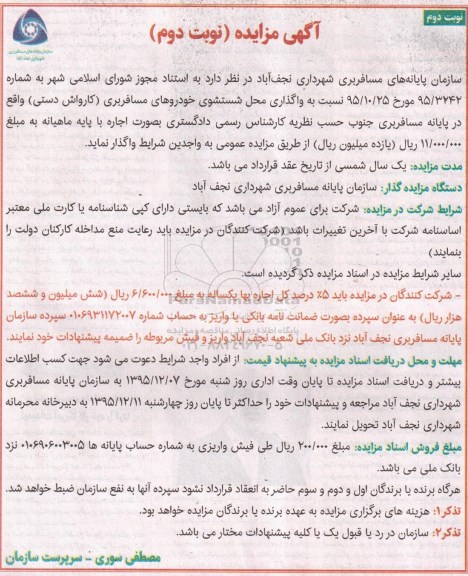 نوبت دوم
آگهی مزایده (نوبت دوم)
سازمان پایانه‌های مسافربری شهرداری نجف‌آباد در نظر دارد به استناد مجوز شورای اسلامی شهر به شماره
۹۵/۳۲۴۲ مورخ ۹۵/۱۰/۲۵ نسبت به واگذاری محل شستشوی خودروهای مسافربری (کارواش دستی) واقع
در پایانه مسافربری جنوب حسب نظریه کارشناس رسمی دادگستری بصورت اجاره با پایه ماهیانه به مبلغ
۱۱/۰۰۰/۰۰۰ ریال (یازده میلیون ریال) از طریق مزایده عمومی به واجدین شرایط واگذار نماید.
مدت مزایده: یک سال شمسی از تاریخ عقد قرارداد می باشد.
دستگاه مزایده گذار: سازمان پایانه مسافربری شهرداری نجف آباد
شرایط شرکت در مزایده: شرکت برای عموم آزاد می باشد که بایستی دارای کپی شناسنامه یا کارت ملی معتبر
اساسنامه شرکت با آخرین تغییرات باشد (شرکت کنندگان در مزایده باید رعایت منع مداخله کارکنان دولت را
بنمایند)
سایر شرایط مزایده در اسناد مزایده ذکر گردیده است.
- شرکت کنندگان در مزایده باید ۵٪ درصد کل اجاره بها یکساله به مبلغ ۶/۶۰۰/۰۰۰ ریال (شش میلیون و ششصد
هزار ریال) به عنوان سپرده بصورت ضمانت نامه بانکی یا واریز به حساب شماره ۰۱۰۶۹۳۱۱۷۲۰۰۷ سپرده سازمان
پایانه مسافربری نجف آباد نزد بانک ملی شعبه نجف آباد واریز و فیش مربوطه را ضمیمه پیشنهادات خود نمایند.
مهلت و محل دریافت اسناد مزایده به پیشنهاد قیمت: از افراد واجد شرایط دعوت می شود جهت کسب اطلاعات
بیشتر و دریافت اسناد مزایده تا پایان وقت اداری روز شنبه مورخ ۱۳۹۵/۱۲/۰۷ به سازمان پایانه مسافربری
شهرداری نجف آباد مراجعه و پیشنهادات خود را حداکثر تا پایان روز چهارشنبه ۱۳۹۵/۱۲/۱۱ به دبیرخانه محرمانه
شهرداری نجف آباد تحویل نمایند.
مبلغ فروش اسناد مزایده: مبلغ ۲۰۰/۰۰۰ ریال طی فیش واریزی به شماره حساب پایانه ها ۰۱۰۶۹۰۶۰۰۳۰۰۵ نزد
بانک ملی می باشد.
هرگاه برنده یا برندگان اول و دوم و سوم حاضر به انعقاد قرارداد نشود سپرده آنها به نفع سازمان ضبط خواهد شد.
تذکر۱: هزینه های برگزاری مزایده به عهده برنده یا برندگان مزایده خواهد بود.
تذکر۲: سازمان در رد یا قبول یک یا کلیه پیشنهادات مختار می باشد.
مصطفی سوری - سرپرست سازمان